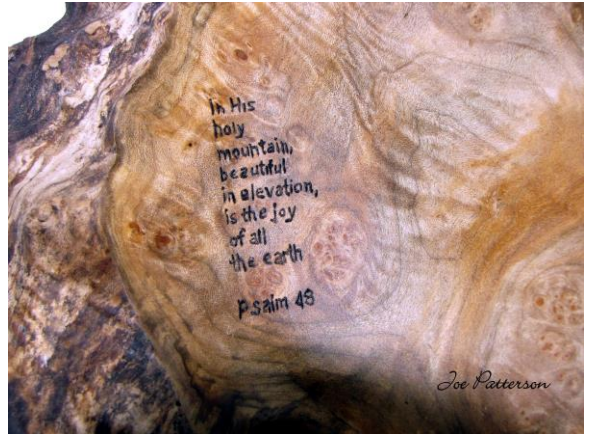 In His
holy
mountain,
beautiful
in elevation,
is the joy
of all
the earth
Psalm 48
Joe Patterson